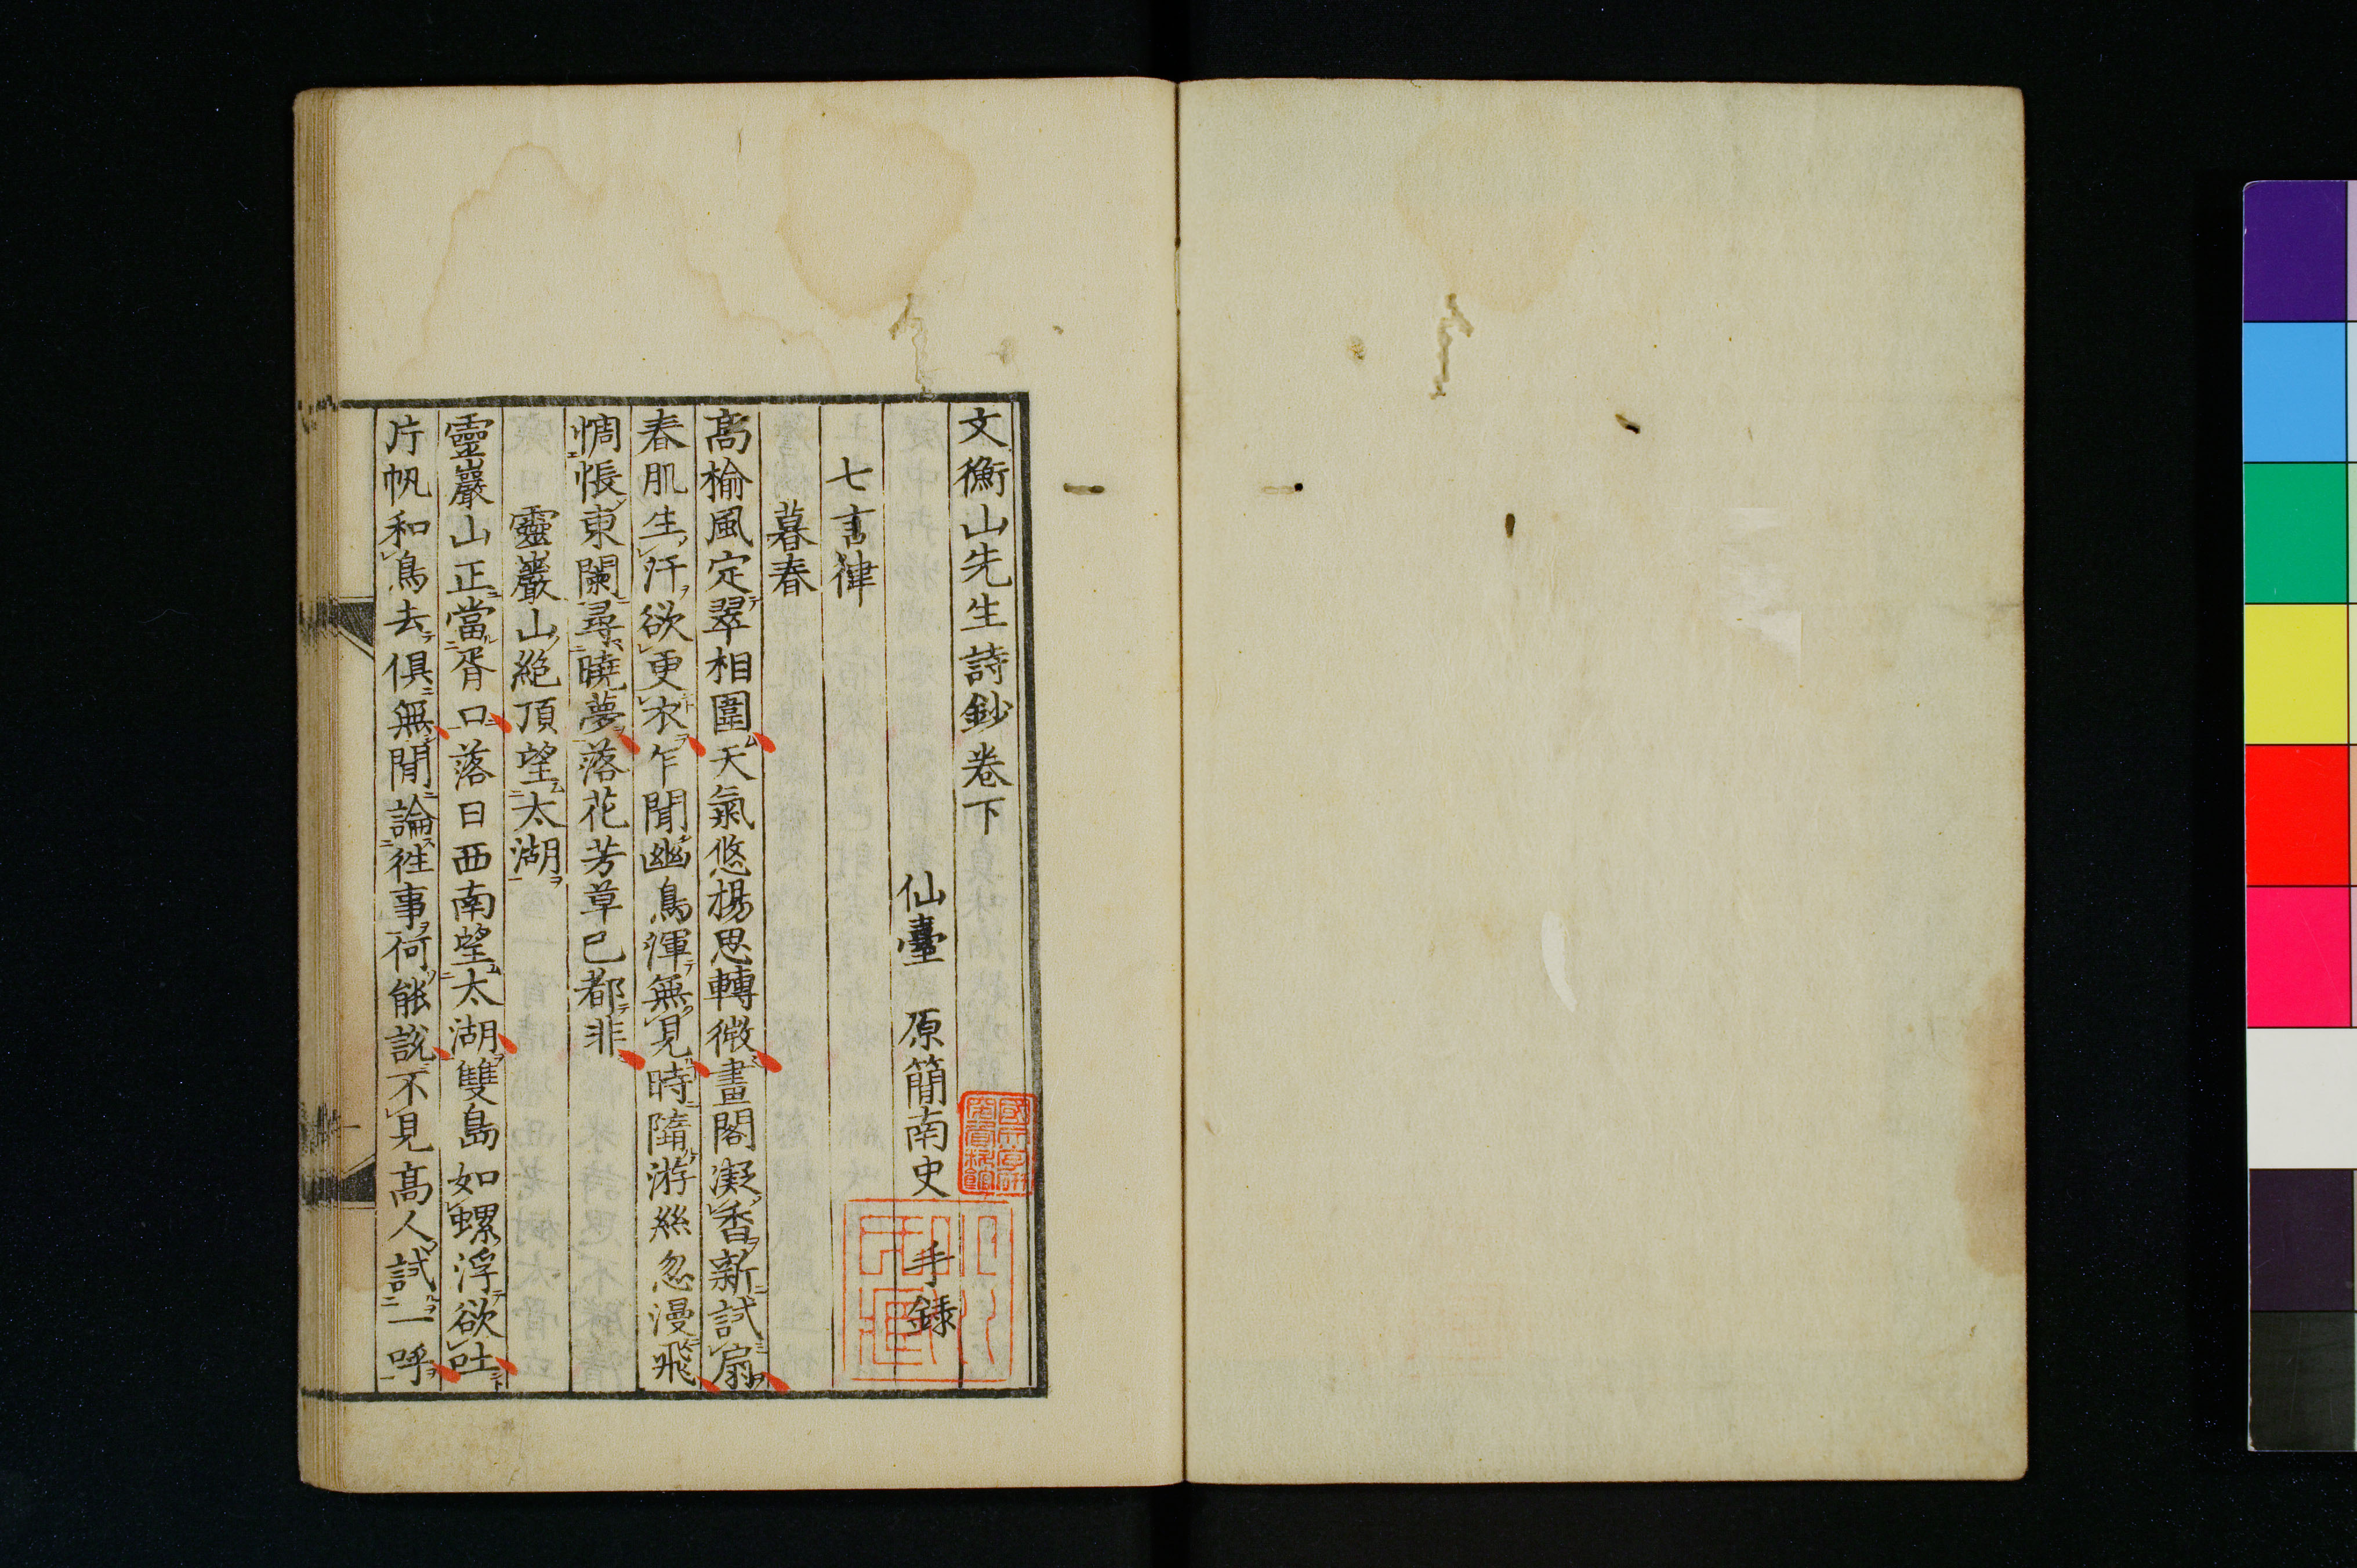 文衡山先生詩鈔卷下
仙臺 原簡南史 手錄
七言律
暮春
高楡風定翠相圍天氣悠楊思轉微畫閣凝香新試扇
春肌生汗欲更衣乍聞幽鳥渾無見時隨游絲忽漫飛
惆悵東闌尋曉夢落花芳草已都非
靈巖山絶頂望太湖
靈巖山正當胥口落日西南望太湖雙島如螺浮欲吐
片帆和鳥去俱無閒論往事何能說不見高人試一呼